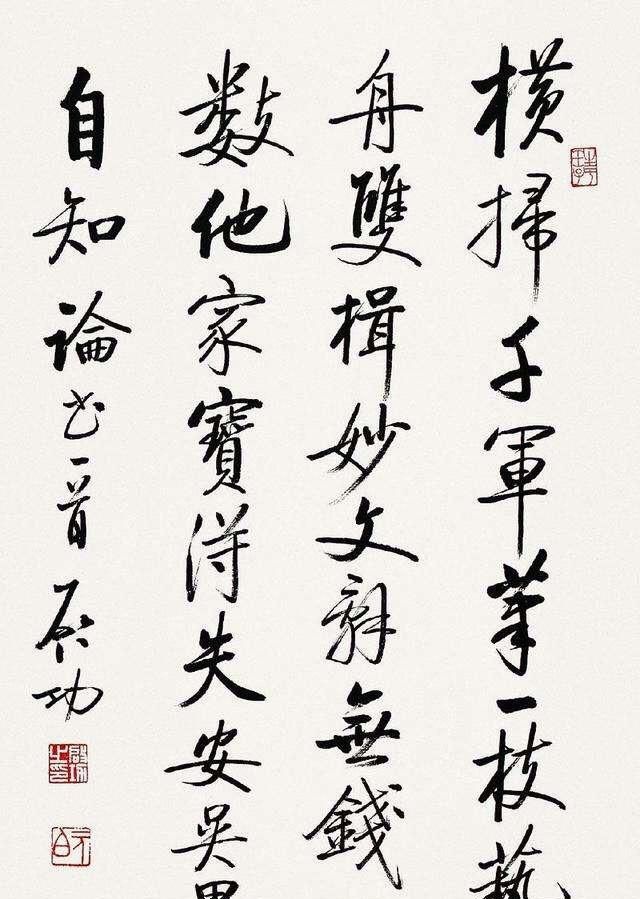 橫掃千軍筆一枝藝
舟雙楫妙文辭無錢
數他家寶得失安吳
自知論書一首启功
啟功之印
元白